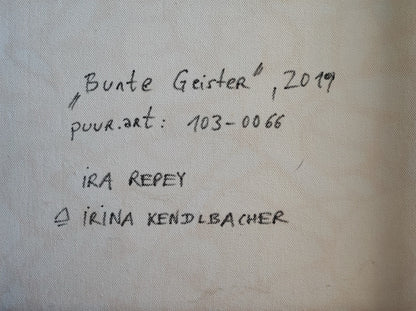 „Bunte Geister“, 2019
puur.art: 103-0066
IRA REPEY
≙ IRINA KENDLBACHER